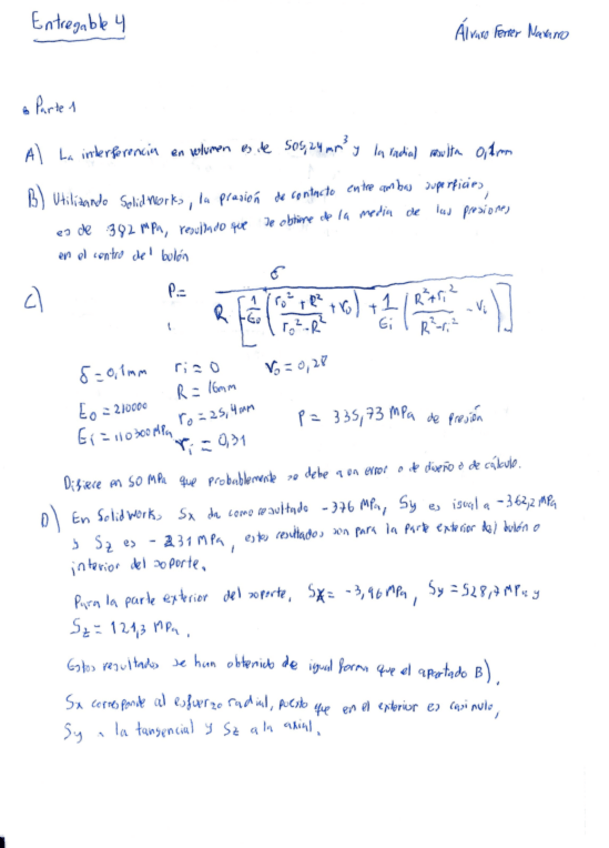 Entregable 4
Álvaro Ferrer Navarro
• Parte 1
A) La interferencia en volumen es de 505,24 mm³ y la radial resulta 0,1mm
B) Utilizando SolidWorks, la presión de contacto entre ambas superficies,
es de 392 MPa, resultado que se obtiene de la media de las presiones
en el centro del bulón
C) P = δ / R [ 1/Eo ( (ro² + R²)/(ro² - R²) + νo ) + 1/Ei ( (R² + ri²)/(R² - ri²) - νi ) ]
δ = 0,1mm ri = 0 νo = 0,28
R = 16mm
Eo = 210000 ro = 25,4mm
Ei = 110300 MPa νi = 0,31 P = 335,73 MPa de presión
Difiere en 50 MPa que probablemente se debe a un error o de diseño o de cálculo.
D) En SolidWorks Sx da como resultado -376 MPa, Sy es igual a -362,2 MPa
y Sz es -231 MPa, estos resultados son para la parte exterior del bulón o
interior del soporte.
Para la parte exterior del soporte, Sx = -3,96 MPa, Sy = 528,7 MPa y
Sz = 121,3 MPa.
Estos resultados se han obtenido de igual forma que el apartado B).
Sx corresponde al esfuerzo radial, puesto que en el exterior es casi nulo,
Sy a la tangencial y Sz a la axial.